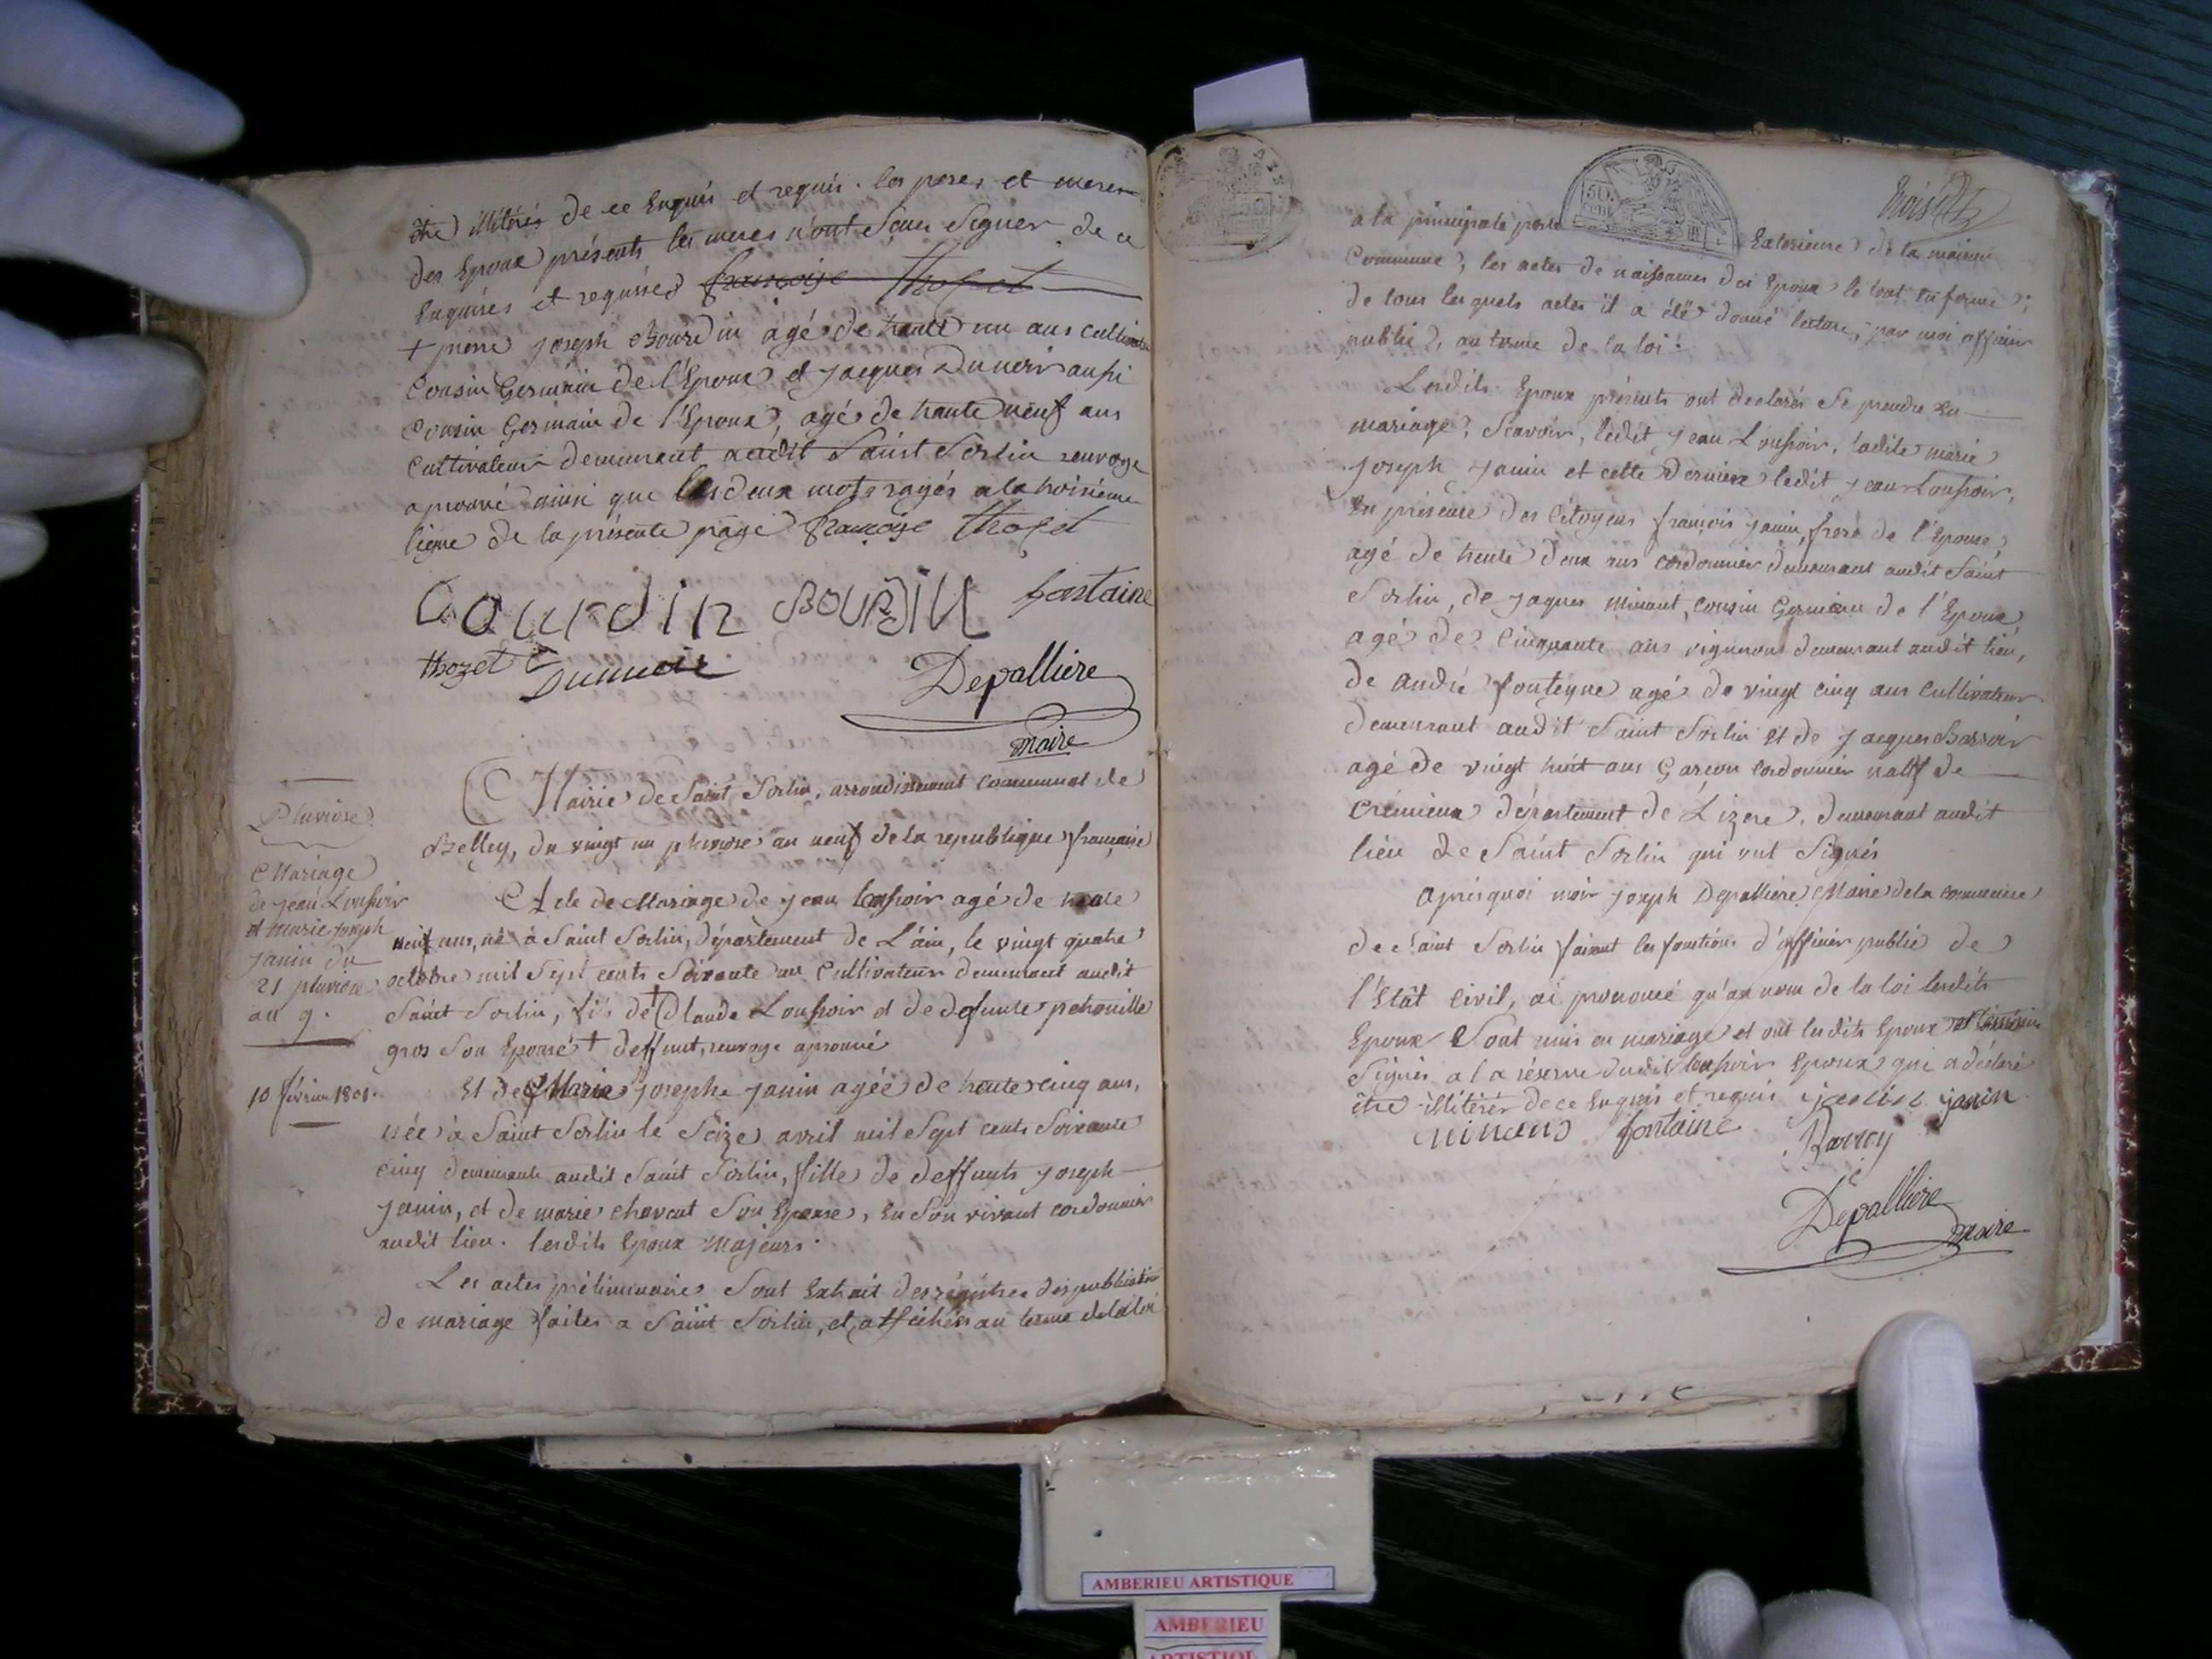 être illitérés de ce Enquis et requis. les peres et meres
des Epoux présents les meres n'ont Sçeu Signer de ce
Enquises et requises françoise thozet
+ pierre joseph Bourdin agé de trante un ans cultivateur
Cousin Germain de l'Epoux et jacques Dunoir aussi
Cousin Germain de l'Epoux, agé de trante neuf ans
Cultivateur demeurant audit Saint Sorlin renvoye
aprouvé ainsi que les deux mots rayés a la troisieme
ligne de la présente page françoise thozet
Gourdin Bourdin fontaine
thozet Dunoir Depalliere
maire
Pluviose
Mairie de Saint Sorlin, arrondissement communal de
Belley, du vingt un pluviose an neuf de la republique française
Mariage
de jean Loussoir
et marie joseph
janin du
21 pluviose
an 9.
10 février 1801.
Acte de Mariage de jean loussoir agé de trante
neuf ans, né à Saint Sorlin, département de L'ain, le vingt quatre
octobre mil Sept cents Soixante un Cultivateur demeurant audit
Saint Sorlin, fils de † Claude Loussoir et de defunte pehouille
gros Son Epouse † deffunt, renvoye aprouvé
Et de Marie josephe janin agée de trante cinq ans,
née à Saint Sorlin le Seize avril mil Sept cents Soixante
cinq demeurante audit Saint Sorlin, fille de deffunts joseph
janin, et de marie chavent Son Epouse, en Son vivant cordonnier
audit lieu. lesdits Epoux Majeurs.
Les actes préliminaires Sont Extrait des régistres des publication
de mariage faites a Saint Sorlin, et affichés au terme de la loi
50
cent
a la principale porte Exterieure de la maison
Commune, les actes de naissances des Epoux le tout en forme;
de tous les quels actes il a été donné lecture, par moi officier
public, au terme de la loi.
Lesdits Epoux présents ont declarés Se prendre en
mariage, Scavoir, ledit jean Loussoir, ladite marie
joseph janin et cette Derniere ledit jean Loussoir,
En présence des Citoyens françois janin, frere de l'Epouse,
agé de trente deux ans cordonnier demeurant audit Saint
Sorlin, de jaques minant, cousin Germain de l'Epoux
agé de Cinquante ans vigneron demeurant audit lieu,
de andré fonteyne agé de vingt cinq ans Cultivateur
demeurant audit Saint Sorlin et de jacques Barroir
agé de vingt huit ans Garçon Cordonnier natif de
Crémieux département de L'izere, demeurant audit
lieu de Saint Sorlin qui ont Signés
apresquoi moi joseph Depalliere Maire de la commune
de Saint Sorlin faisant les fonctions d'officier public de
l'Etat Civil, ai prononcé qu'au nom de la loi lesdits
Epoux Sont unis en mariage et ont lesdits Epoux et temoins
Signés a la réserve dudit loussoir Epoux qui a déclaré
être illitérér de ce Enquis et requis janin janin
minans fontaine
Depalliere
maire
AMBERIEU ARTISTIQUE
AMBERIEU
ARTISTIQUE